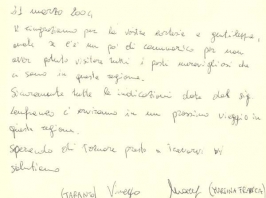 11 marzo 2004
Vi ringraziamo per la vostra cortesia e gentilezza,
anche se c'è un po' di rammarico per non
aver potuto visitare tutti i posti meravigliosi che
ci sono in questa regione.
Sicuramente tutte le indicazioni date dal sig.
Lonfranco ci serviranno in un prossimo viaggio in
questa regione.
Sperando di tornare presto a rivederci vi
salutiamo